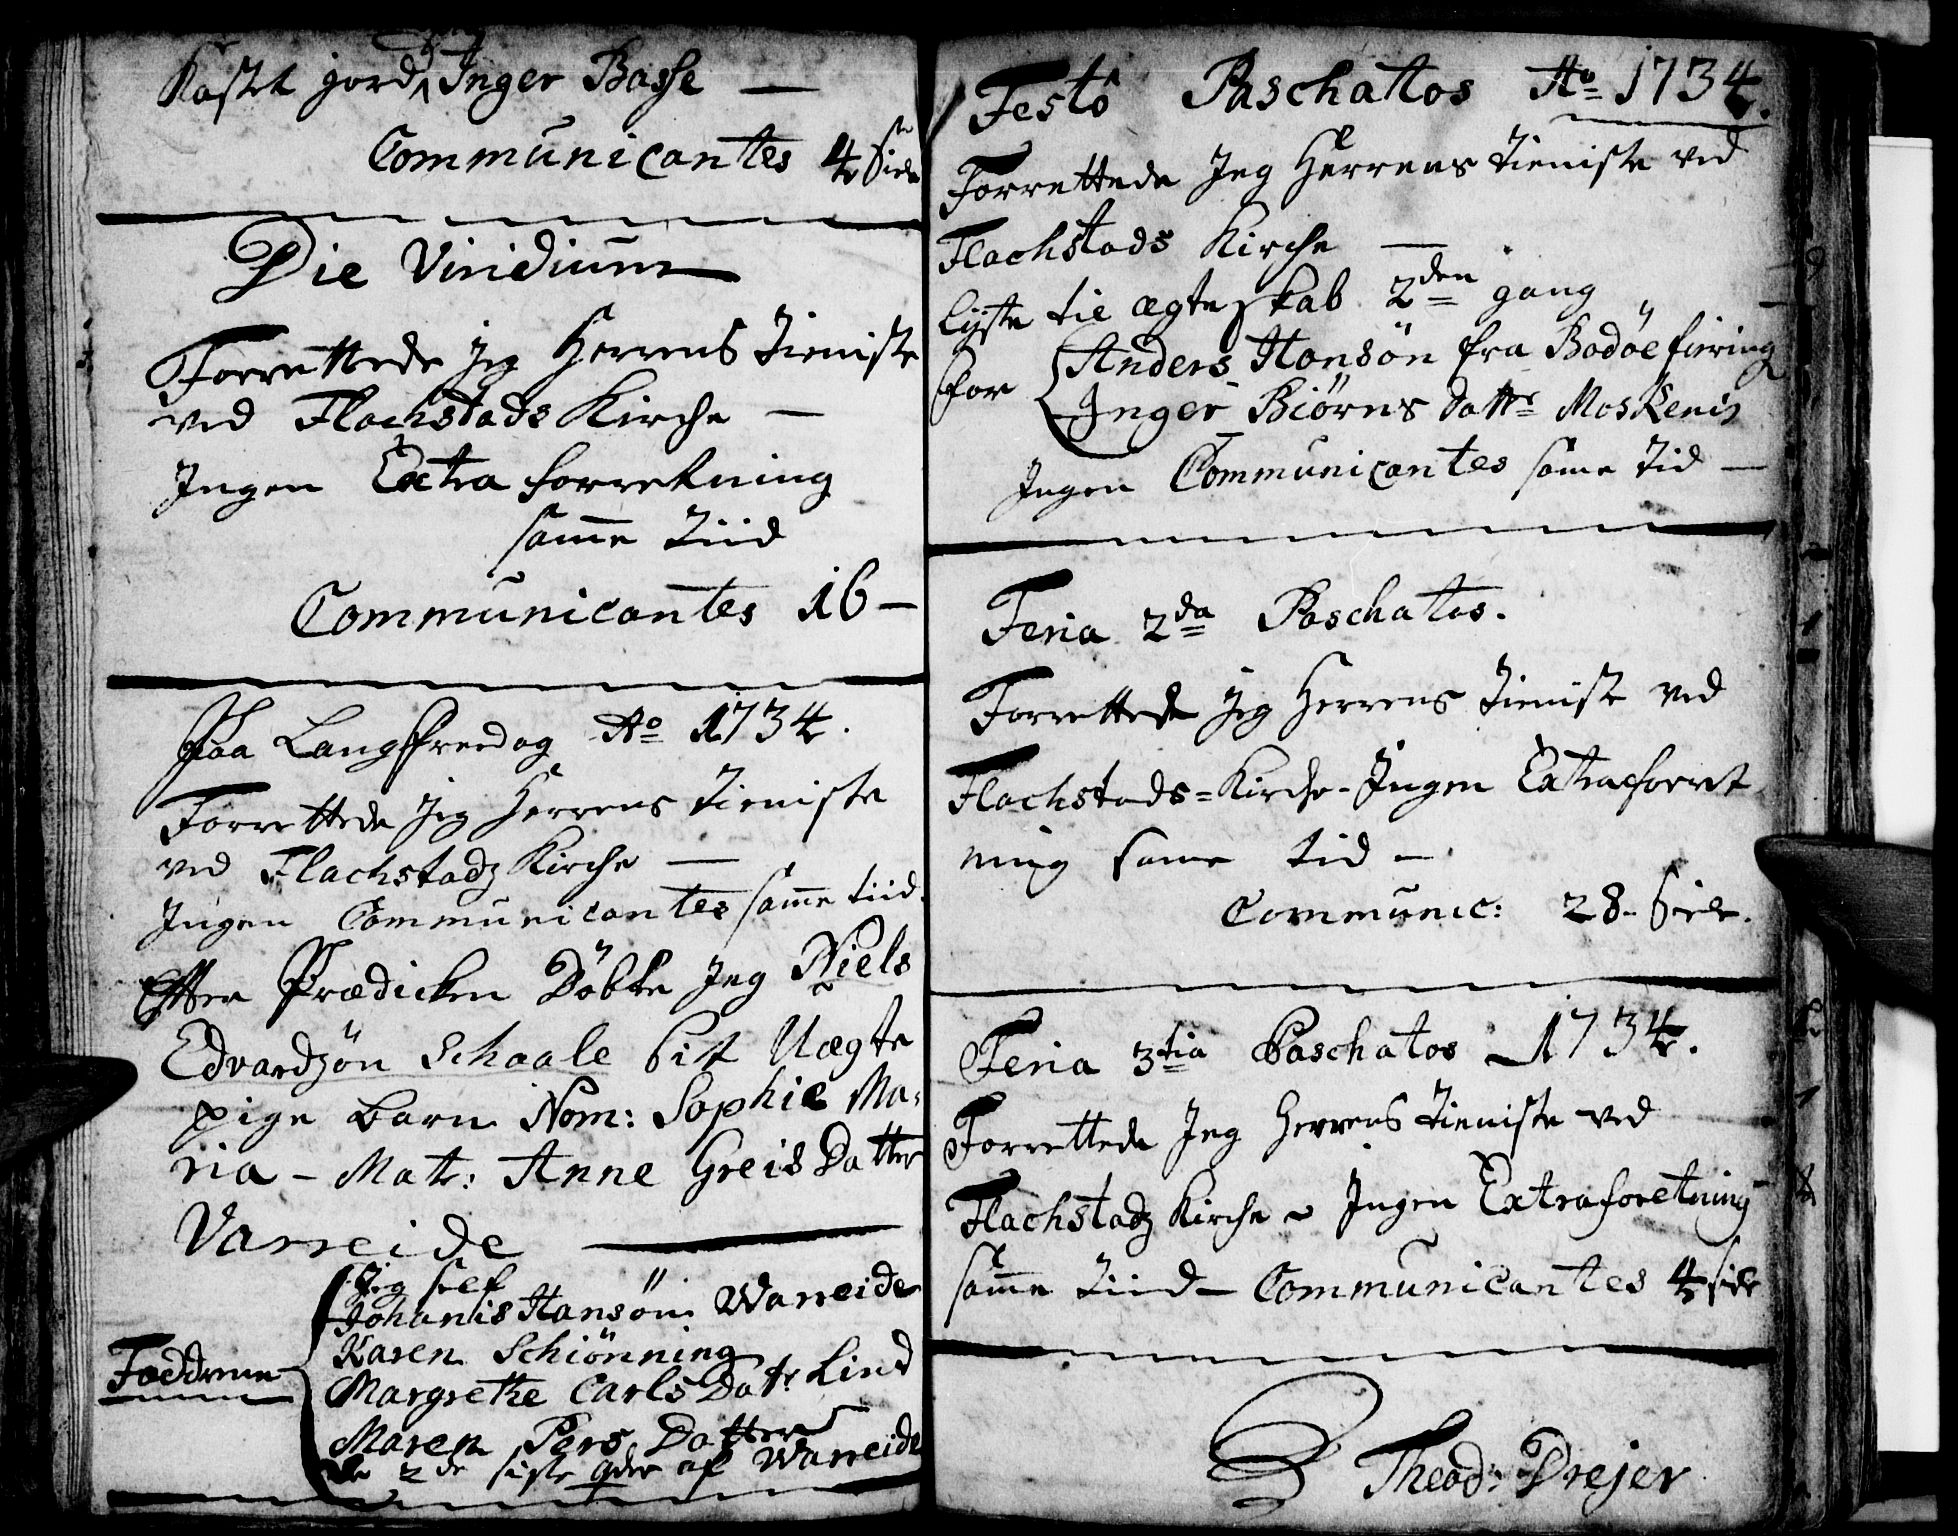 Kastet jord Inger Basse —
Communicantes 4 Siele
Die Viridium
Forrettede Jeg Herrens Tieniste
ved Flachstads Kirche —
Ingen Extra forretning
samme Tiid
Communicantes 16 —
Paa Langfreedag Ao 1734.
Forrettede Jeg Herrens Tieniste
ved Flachstadz Kirche —
Ingen Communicantes samme tiid.
Efter Prædicken Döbte Jeg Niels
Edvardzön Schaale sit Uægte
pige barn Nom: Sophie Ma-
ria - Matr: Anne Greis Datter
Varreide
Jeg self
Johanis Hansön Warreide
Karen Schiönning
Fadderne
Margrethe Carls Datr Lind
Maren Pers Datter
de 2de siste af Warreide
Festo Paschatos Ao 1734.
Forrettede Jeg Herrens Tieniste ved
Flachstads Kirche —
lyste til ægteskab 2den gang
for Anders Hansön fra Bodöe fiering
Inger Biörns Dattr Moskenis
Ingen Communicantes same Tid —
Feria 2da Paschatos.
Forrettede Jeg Herrens Tieniste ved
Flachstads = Kirche - Ingen Extraforret
ning same tid —
Communic: 28. Siele.
Feria 3tia Paschatos 1734.
Forrettede Jeg Herrens Tieniste ved
Flachstadz Kirche - Ingen Extraforetning
samme Tiid — Communicantes 4 siele
Theod: Drejer